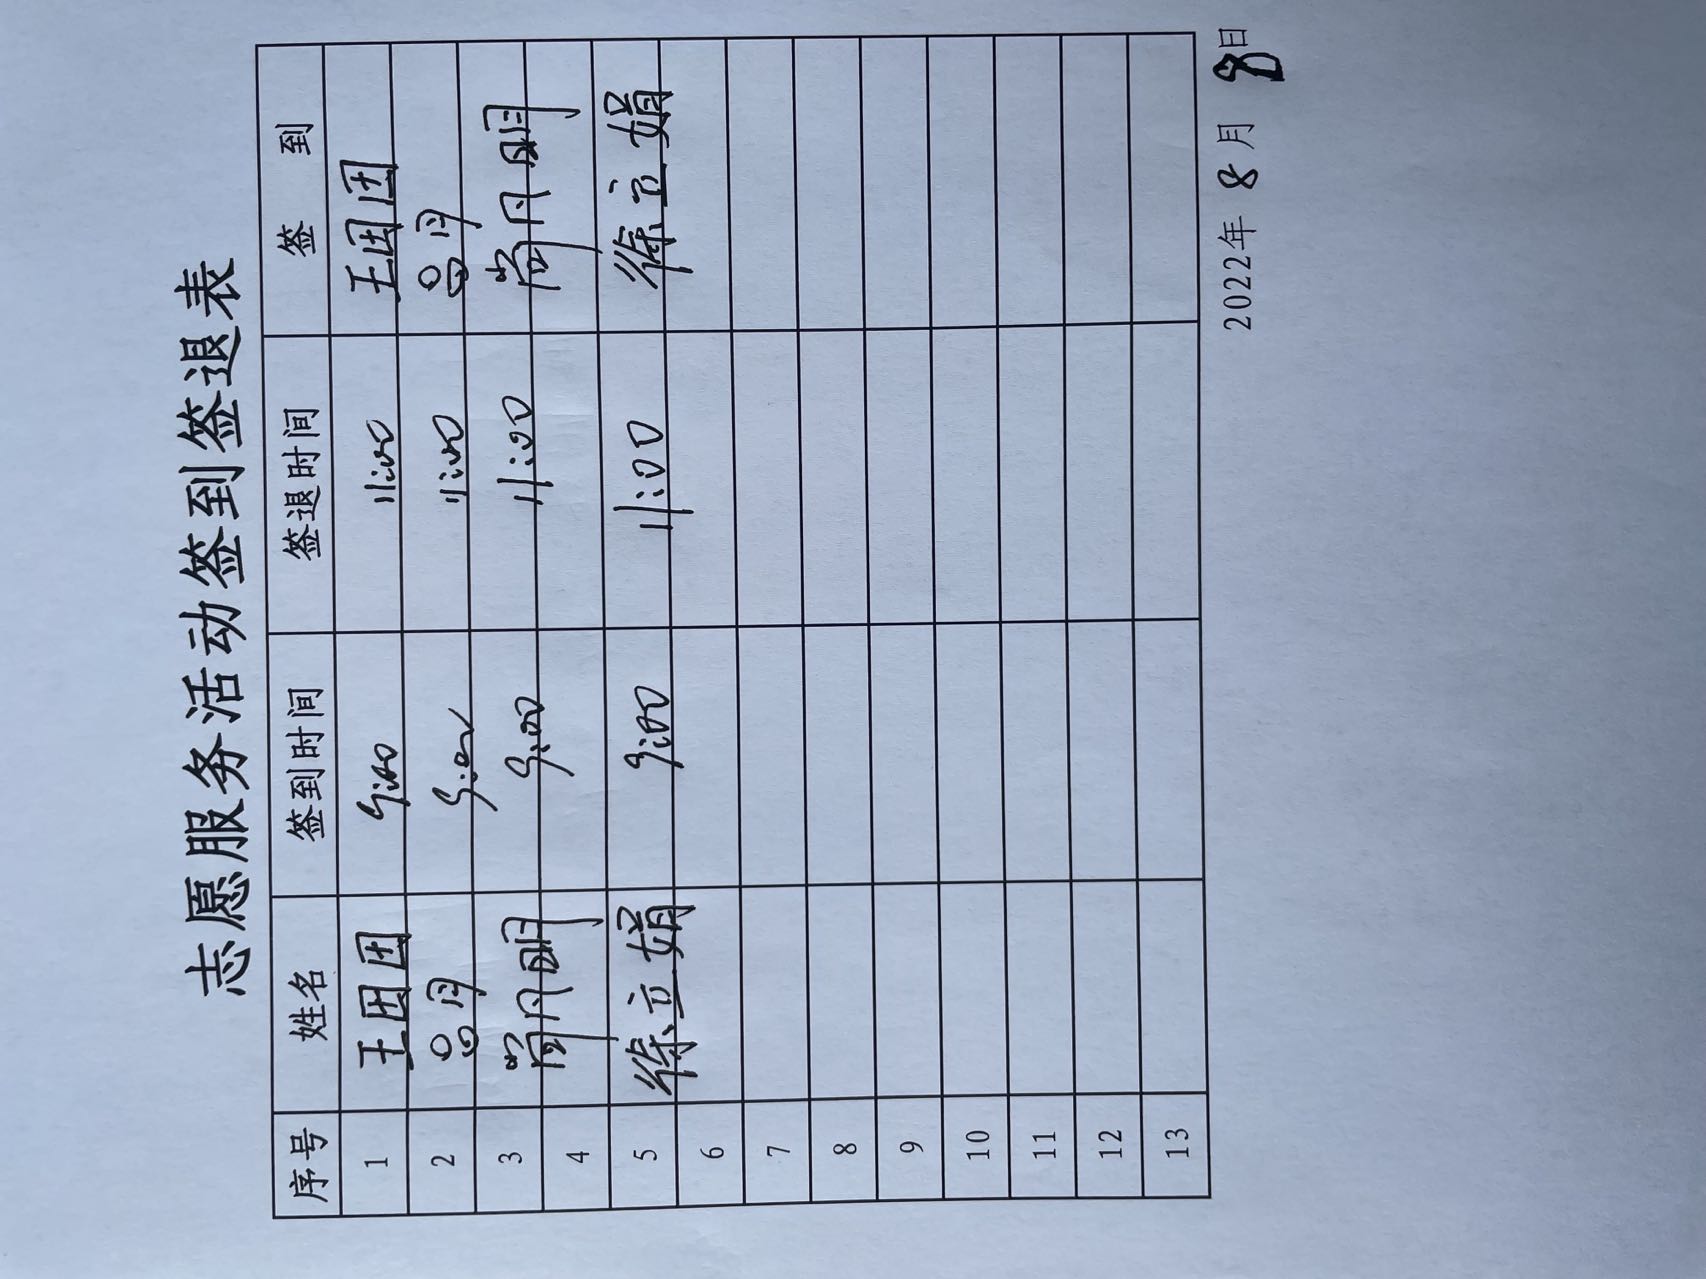 志愿服务活动签到签退表
序号 姓名 签到时间 签退时间 签 到
1 王团团 9:00 11:00 王团团
2 吕丹 9:00 11:00 吕丹
3 尚丹明 9:00 11:00 尚丹明
4
5 徐立娟 9:00 11:00 徐立娟
6
7
8
9
10
11
12
13
2022年 8 月 8日